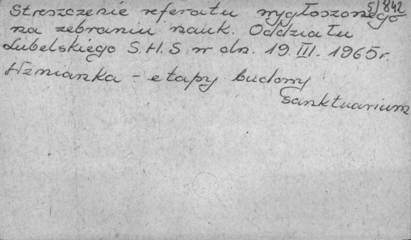 5/842
Streszczenie referatu wygłoszonego
na zebraniu nauk. Oddziału
Lubelskiego S.H.S. w dn. 19. III. 1965r.
Wzmianka - etapy budowy
sanktuarium